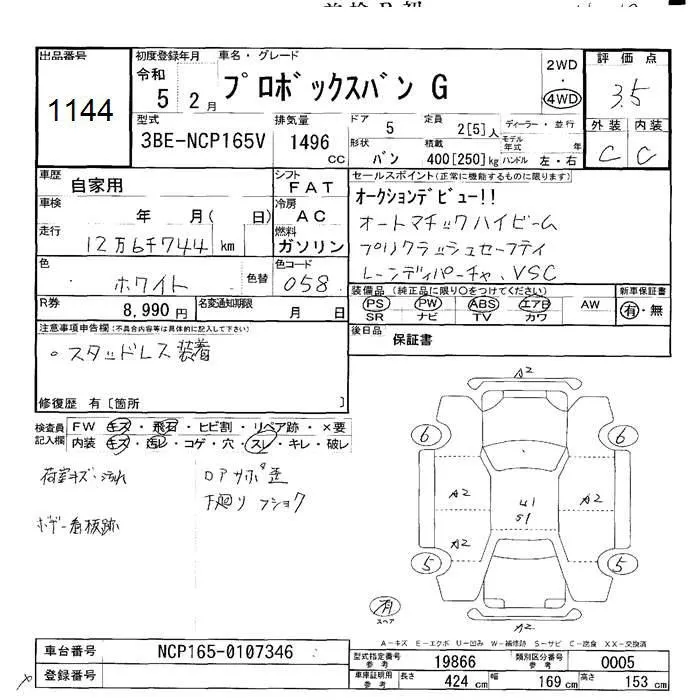 出品番号
1144
初度登録年月
令和
5 2月
車名・グレード
プロボックスバン G
2WD
・
4WD
評価点
3.5
外装 内装
C C
型式
3BE-NCP165V
排気量
1496 CC
ドア 5
形状 バン
定員 2[5]人
積載 400[250]kg
ディーラー・並行
モデル年式 年
ハンドル 左・右
車歴 自家用
シフト FAT
車検 年 月( 日)
冷房 AC
走行 12万6千744 km
燃料 ガソリン
色 ホワイト 色替
色コード 058
R券 8,990円
名変通知期限 月 日
セールスポイント(正常に機能するものに限ります)
オークションデビュー!!
オートマチックハイビーム
プリクラッシュセーフティ
レーンディパーチャ、VSC
装備品(純正品に限り○をつけてください)
PS PW ABS エアB AW
SR ナビ TV カワ
新車保証書
有・無
後日品 保証書
注意事項申告欄(不具合内容等は具体的に記入して下さい)
。スタッドレス装着
修復歴 有[箇所 ]
検査員記入欄
FW キズ・飛石・ヒビ割・リペア跡・×要
内装 キズ・汚れ・コゲ・穴・スレ・キレ・破レ
荷室キズ・汚れ
ロアサポ歪
下廻りフショク
ボデー看板跡
A2
6 6
A2 A2
U1
S1
A2
5 5
有
スペア
A2
A-キズ E-エクボ U-凹み W-補修跡 S-サビ C-腐食 XX-交換済
車台番号 NCP165-0107346
登録番号
型式指定番号 参考 19866
類別区分番号 参考 0005
車庫証明記入用 参考 長さ 424 cm 幅 169 cm 高さ 153 cm